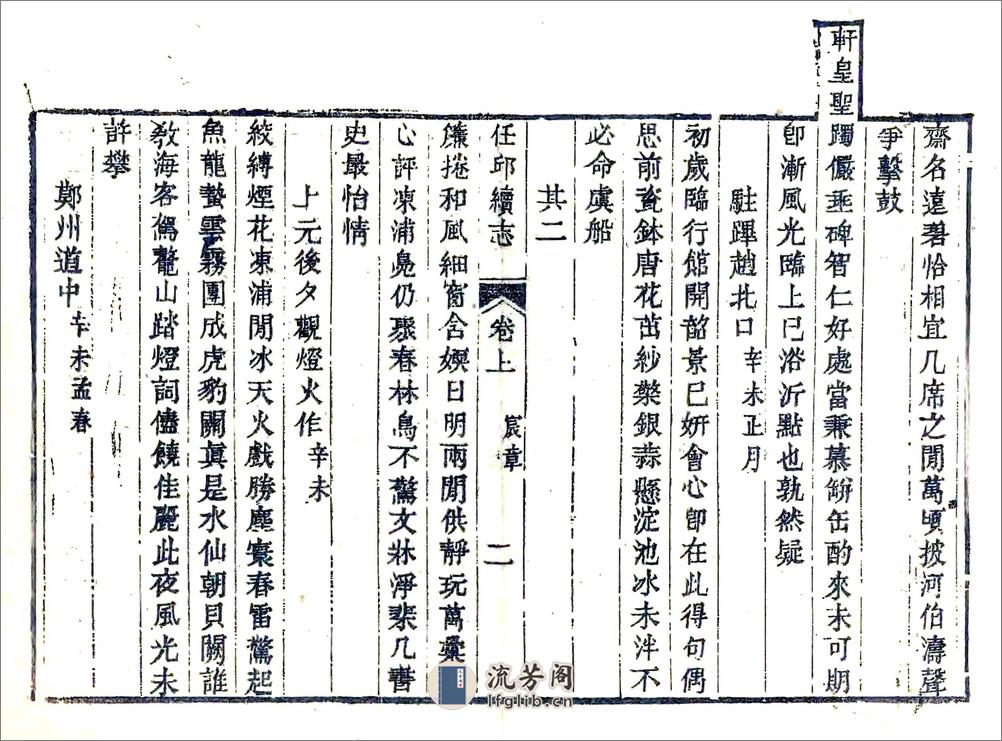 齋名遠碧恰相宜几席之閒萬頃披河伯濤聲
爭擊鼓
軒皇聖躅儼垂碑智仁好處當兼慕缾缶酌來未可期
卽漸風光臨上巳浴沂點也孰然疑
駐蹕趙北口辛未正月
初歲臨行館開韶景已妍會心卽在此得句偶
思前瓷鉢唐花茁紗櫺銀蒜懸淀池冰未泮不
必命虞船
其二
任邱續志 卷上 宸章 二
簾捲和風細窗含嫰日明兩閒供靜玩萬彚
心評凍浦鳧仍聚春林鳥不驚文牀淨棐几書
史最怡情
上元後夕觀燈火作辛未
絞縛煙花凍浦閒冰天火戲勝塵寰春雷驚起
魚龍蟄雲霧團成虎豹關眞是水仙朝貝闕誰
敎海客駕鼇山踏燈詞儘饒佳麗此夜風光未
許攀
鄚州道中辛未孟春
流芳阁
lfglib.cn